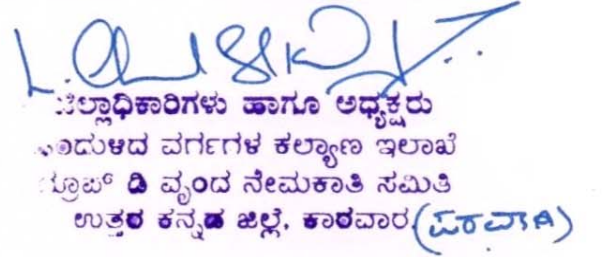 ಜಿಲ್ಲಾಧಿಕಾರಿಗಳು ಹಾಗೂ ಅಧ್ಯಕ್ಷರು
ಹಿಂದುಳಿದ ವರ್ಗಗಳ ಕಲ್ಯಾಣ ಇಲಾಖೆ
ಗ್ರೂಪ್ ಡಿ ವೃಂದ ನೇಮಕಾತಿ ಸಮಿತಿ
ಉತ್ತರ ಕನ್ನಡ ಜಿಲ್ಲೆ, ಕಾರವಾರ (ಪರವಾಗಿ)